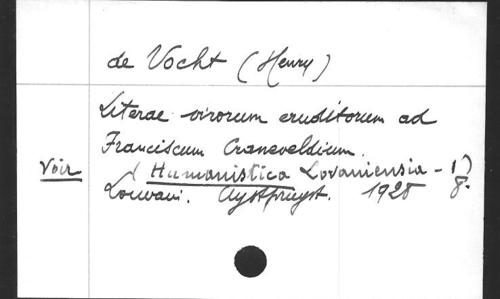 de Vocht (Henry)
Literae virorum eruditorum ad
Franciscum Craneveldium.
Voir (Humanistica Lovaniensia - 1)
Louvain. Uystpruyst. 1928 8.